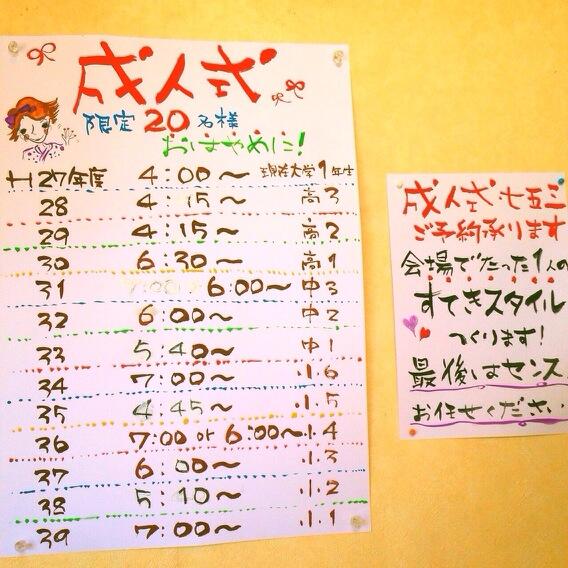 成人式
限定20名様
おはやめに!
H27年度 4:00〜 現在大学1年生
28 4:15〜 高3
29 4:15〜 高2
30 6:30〜 高1
31 6:00〜 中3
32 6:00〜 中2
33 5:40〜 中1
34 7:00〜 小6
35 4:45〜 小5
36 7:00 or 6:00〜 小4
37 6:00〜 小3
38 5:10〜 小2
39 7:00〜 小1
成人式・七五三
ご予約承ります
会場でたった1人の
すてきスタイル
つくります!
最後はセンス
お任せください